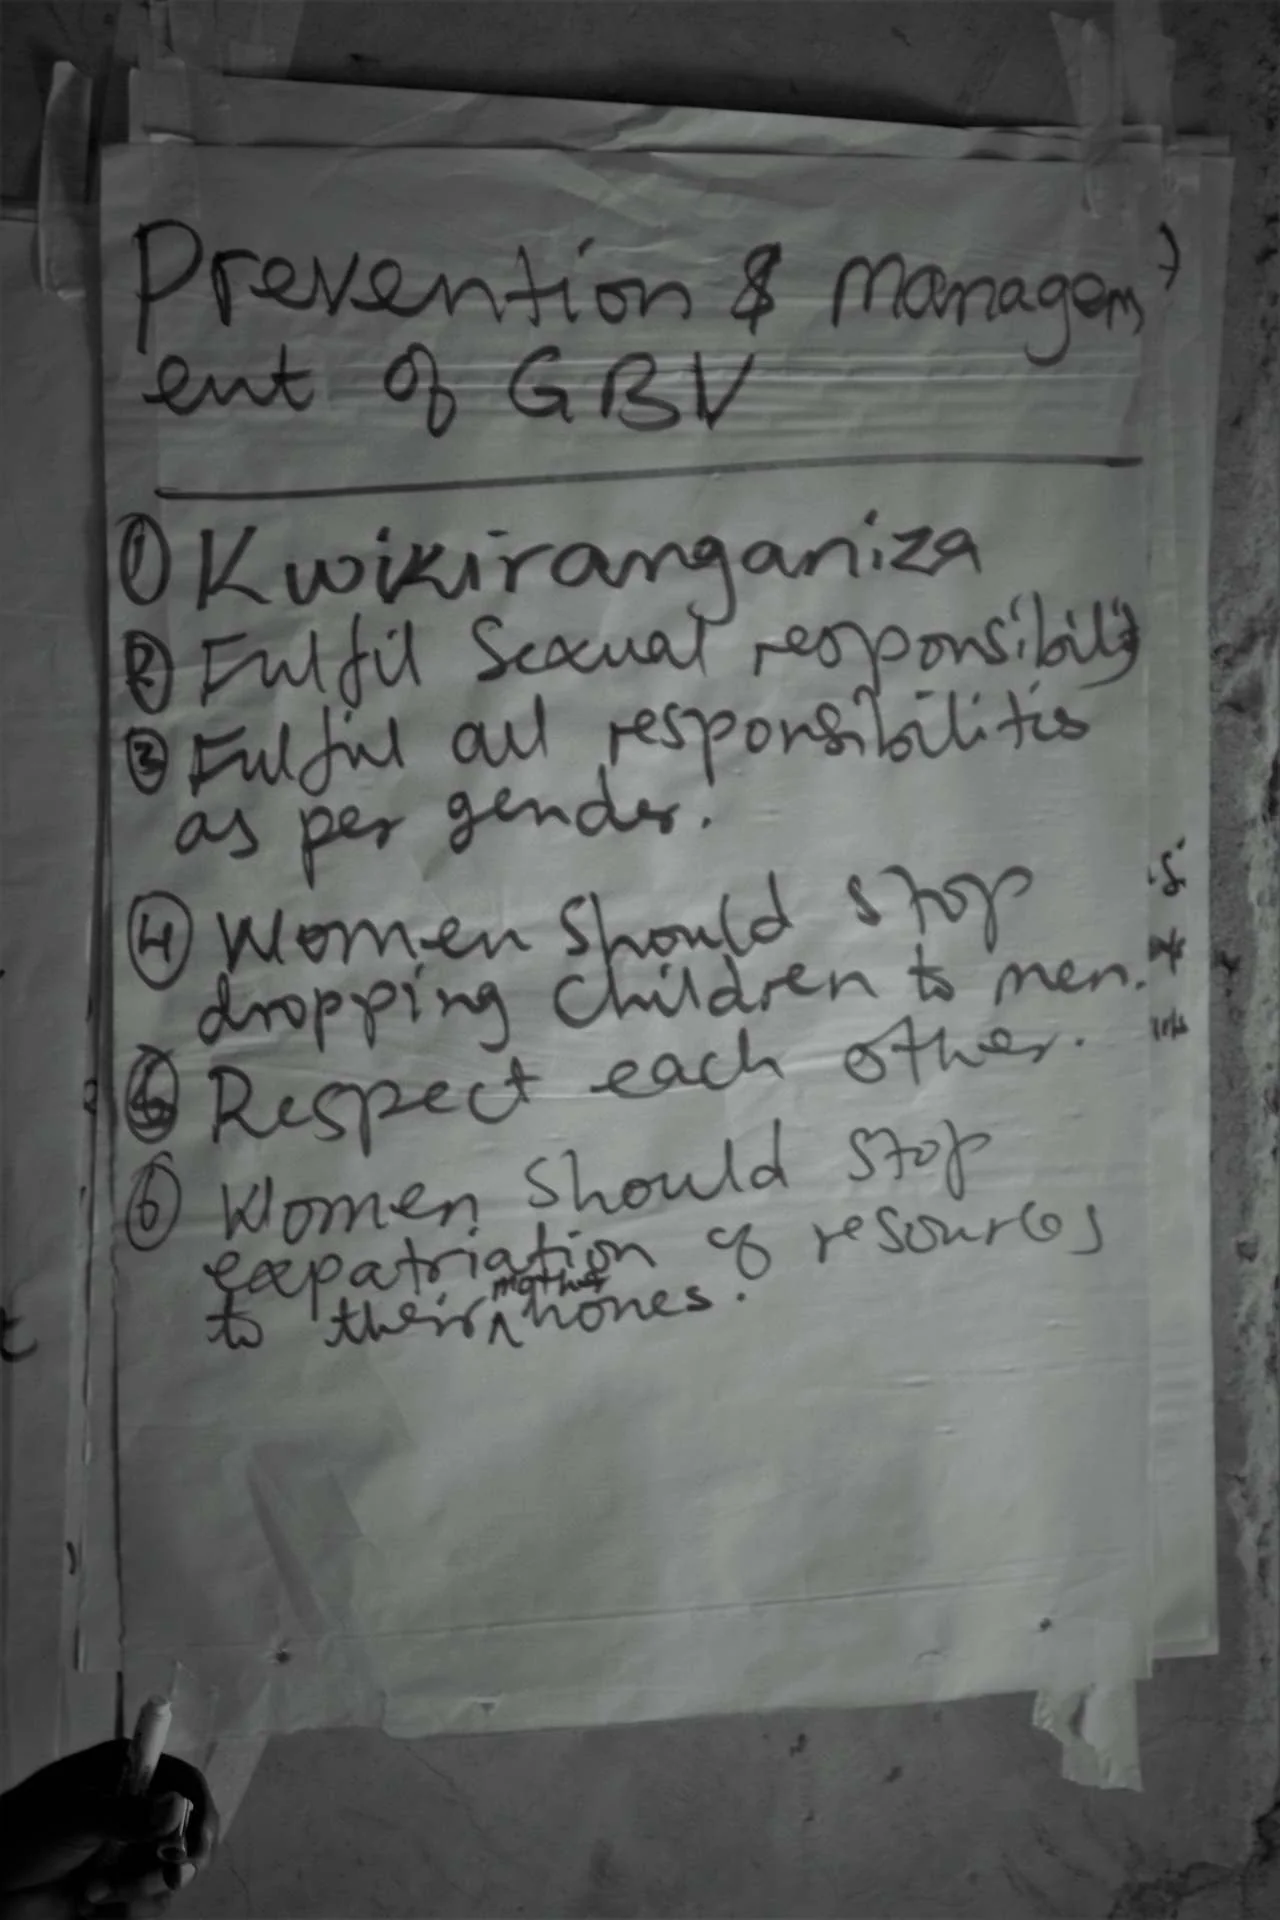 Prevention & Managem
ent of GBV
① Kwikiranganiza
② Fulfil Sexual responsibility
③ Fulfil all responsibilities
as per gender.
④ Women should stop
dropping children to men.
⑤ Respect each other.
⑥ Women should stop
expatriation of resources
to their mother homes.